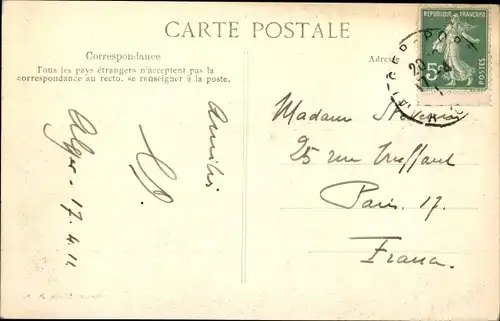 CARTE POSTALE
Correspondance
Tous les pays étrangers n'acceptent pas la
correspondance au recto. se renseigner à la poste.
Amitiés
Alger. 17.4.11
REPUBLIQUE FRANÇAISE
5c
POSTES
Madame
25 rue Truffaut
Paris. 17.
France.